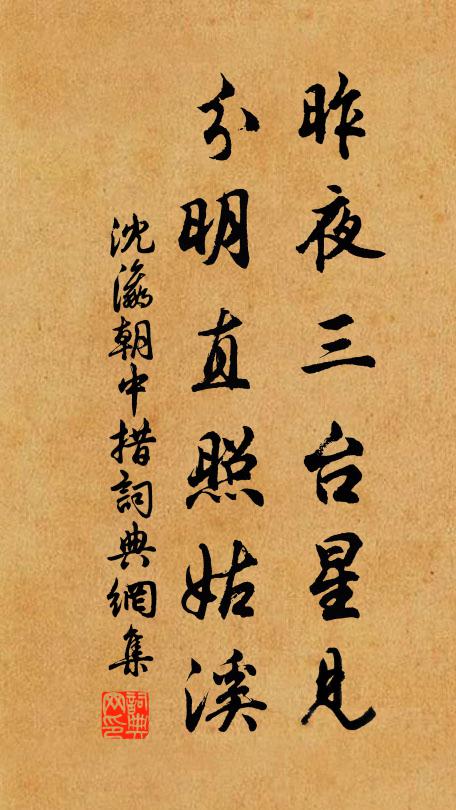 昨夜三台星見
分明直照姑溪
沈瀛朝中措詞典網集
詞典網印